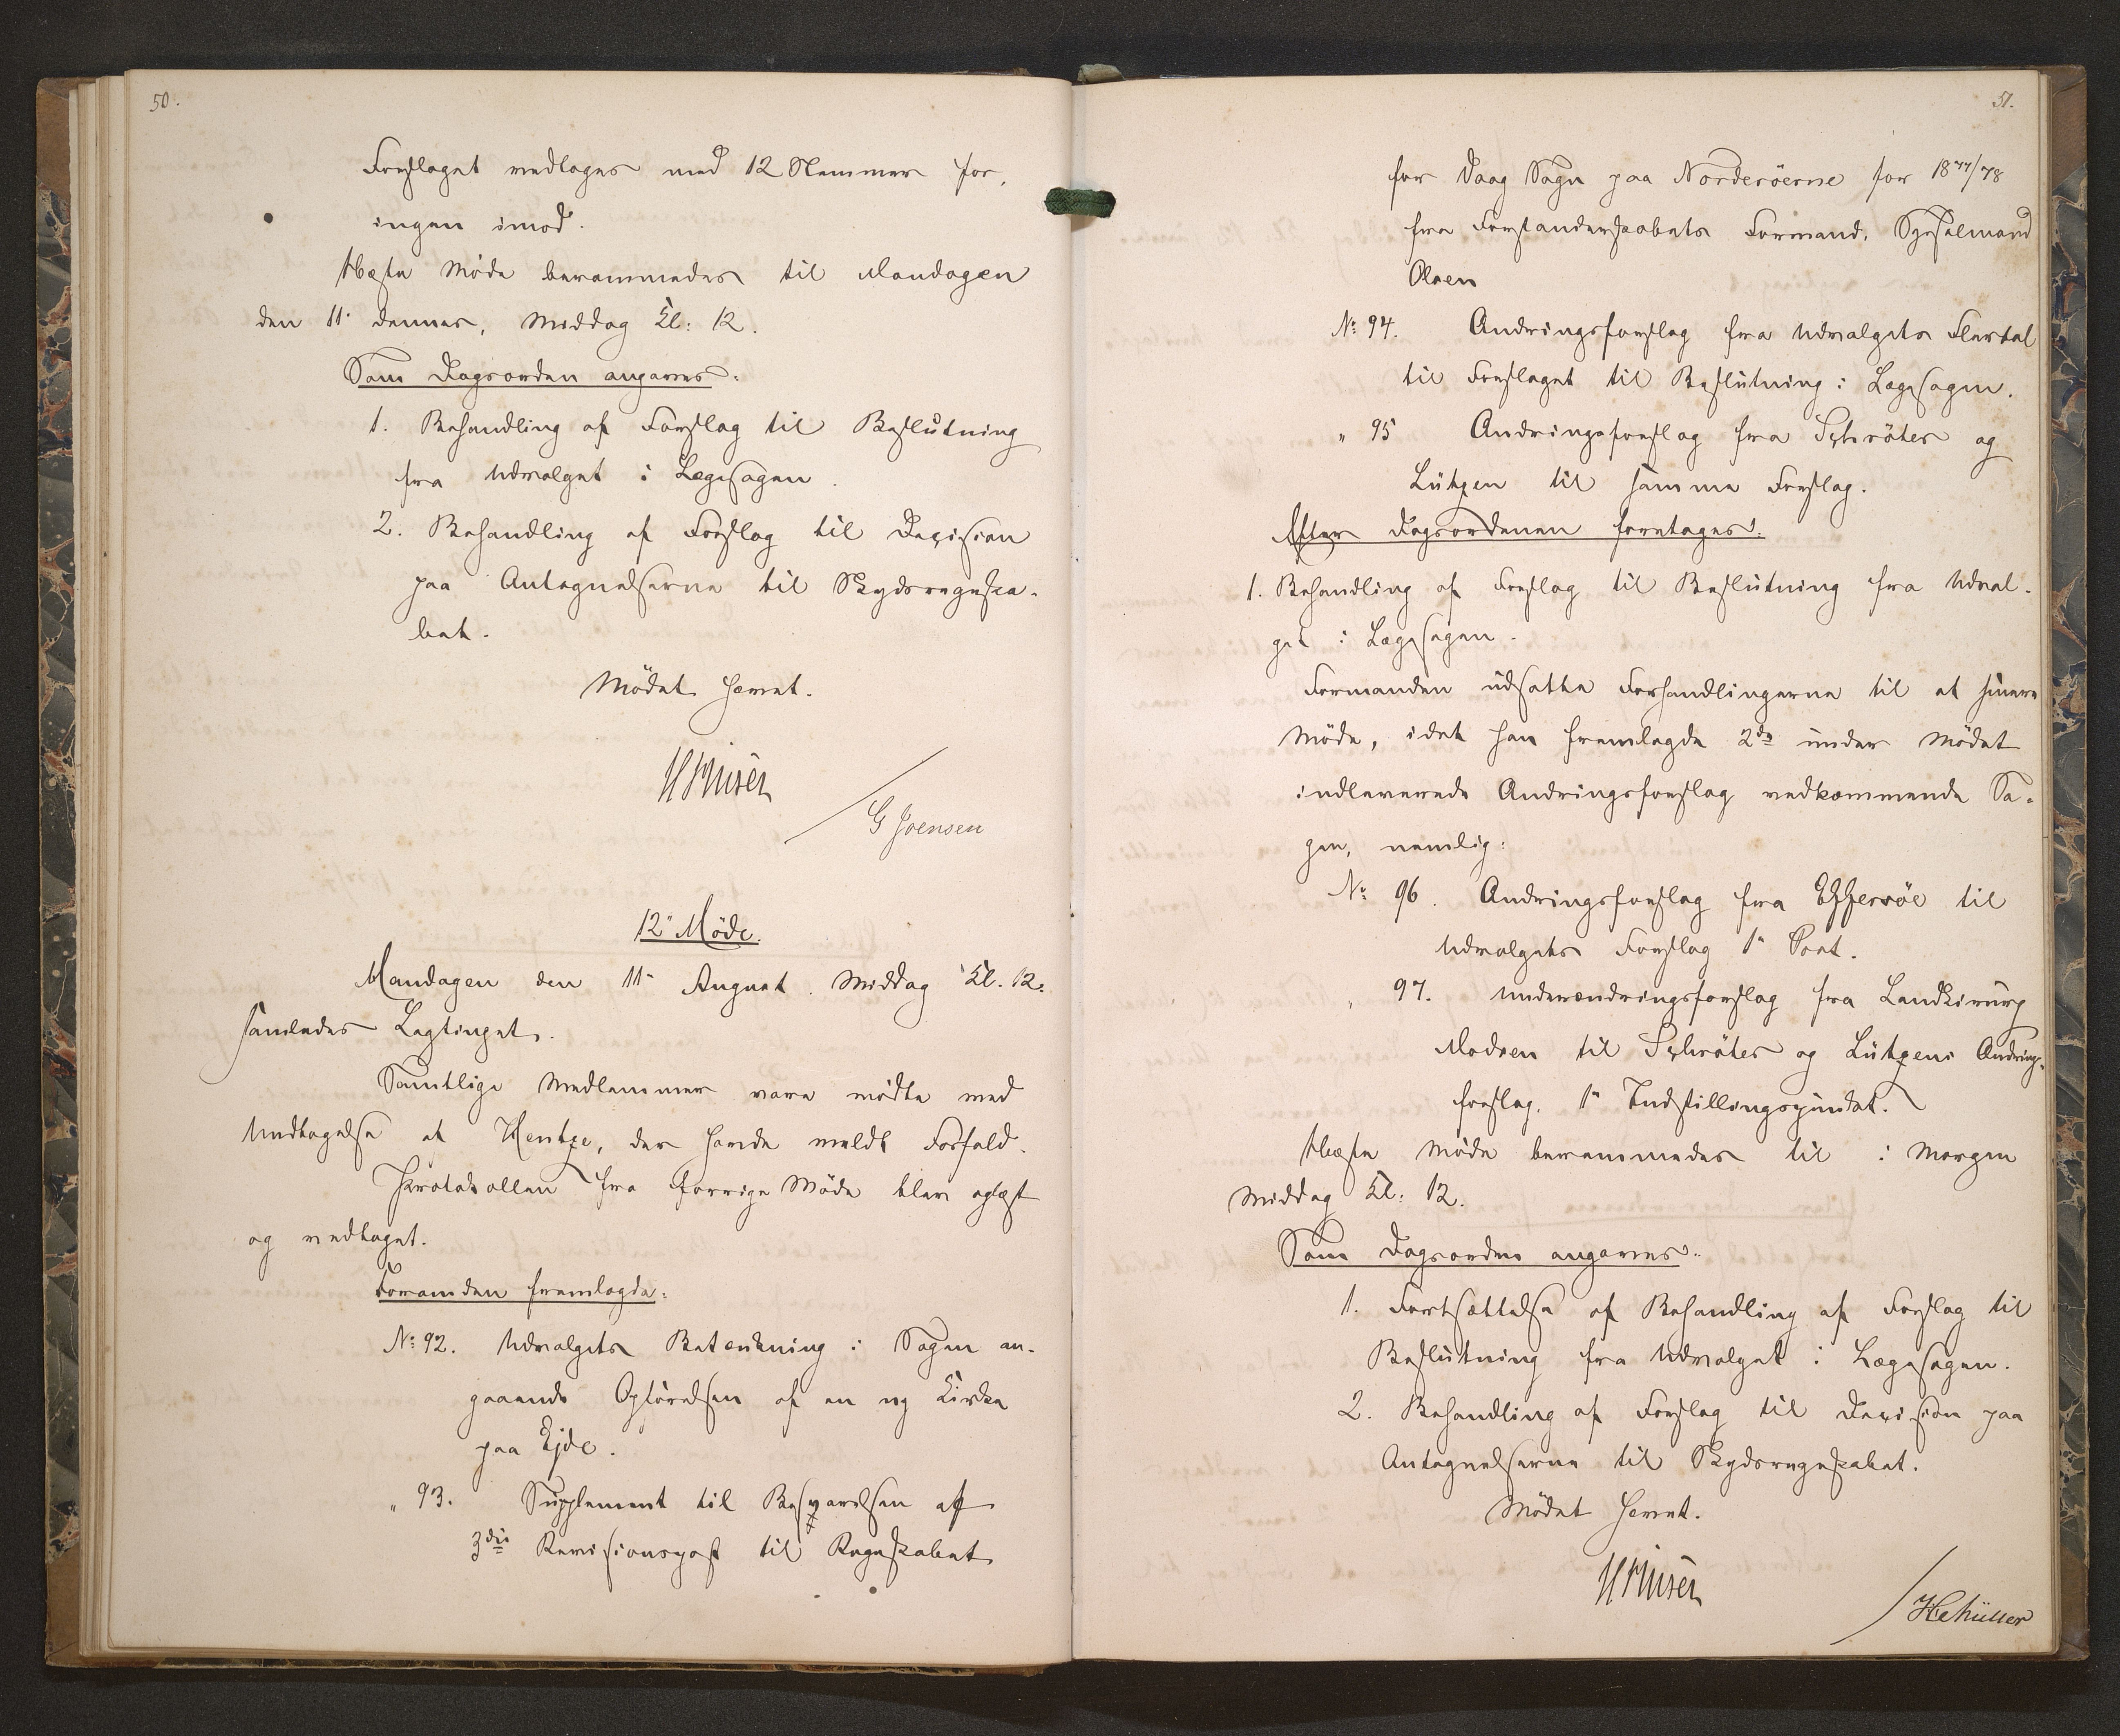 50.
Forslaget vedtoges med 12 Stemmer for,
ingen imod.
Næste Møde berammedes til Mandagen
den 11' dennes, Middag Kl: 12.
Som Dagsorden angaves:
1. Behandling af Forslag til Beslutning
fra Udvalget i Lægesagen.
2. Behandling af Forslag til Decision
paa Antegnelserne til Skydsregnska-
bet.
Mødet hævet.
G Joensen
12' Møde.
Mandagen den 11' August. Middag Kl. 12.
samledes Lagtinget.
Samtlige Medlemmer vare mødte med
Undtagelse af Hentze, der havde meldt Forfald.
Protokollen fra forrige Møde blev oplæst
og vedtaget.
Formanden fremlagde:
No: 92. Udvalgets Betænkning i Sagen an-
gaaende Opførelsen af en ny Kirke
paa Ejde.
" 93. Supplement til Besvarelsen af
3die Revisionspost til Regnskabet
51.
for Vaag Sogn paa Norderöerne for 1877/78
fra Forstanderskabets Formand, Sysselmand
Olsen
No: 94. Ændringsforslag fra Udvalgets Flertal
til Forslaget til Beslutning i Lægesagen.
" 95 Ændringsforslag fra Schröter og
Lützen til samme Forslag.
Efter Dagsordenen foretoges:
1. Behandling af Forslag til Beslutning fra Udval-
get i Lægesagen.
Formanden udsatte Forhandlingerne til et senere
Møde, idet han fremlagde 2de under Mødet
indleverede Ændringsforslag vedkommende Sa-
gen, nemlig:
No: 96. Ændringsforslag fra Effersöe til
Udvalgets Forslag 1' Post.
" 97. Underændringsforslag fra Landkirurg
Madsen til Schröter og Lützens Ændrings-
forslag, 1' Indstillingspunkt.
Næste Møde berammedes til i Morgen
Middag Kl: 12.
Som Dagsorden angaves:
1. Fortsættelse af Behandling af Forslag til
Beslutning fra Udvalget i Lægesagen.
2. Behandling af Forslag til Decision paa
Antegnelserne til Skydsregnskabet.
Mødet hævet.